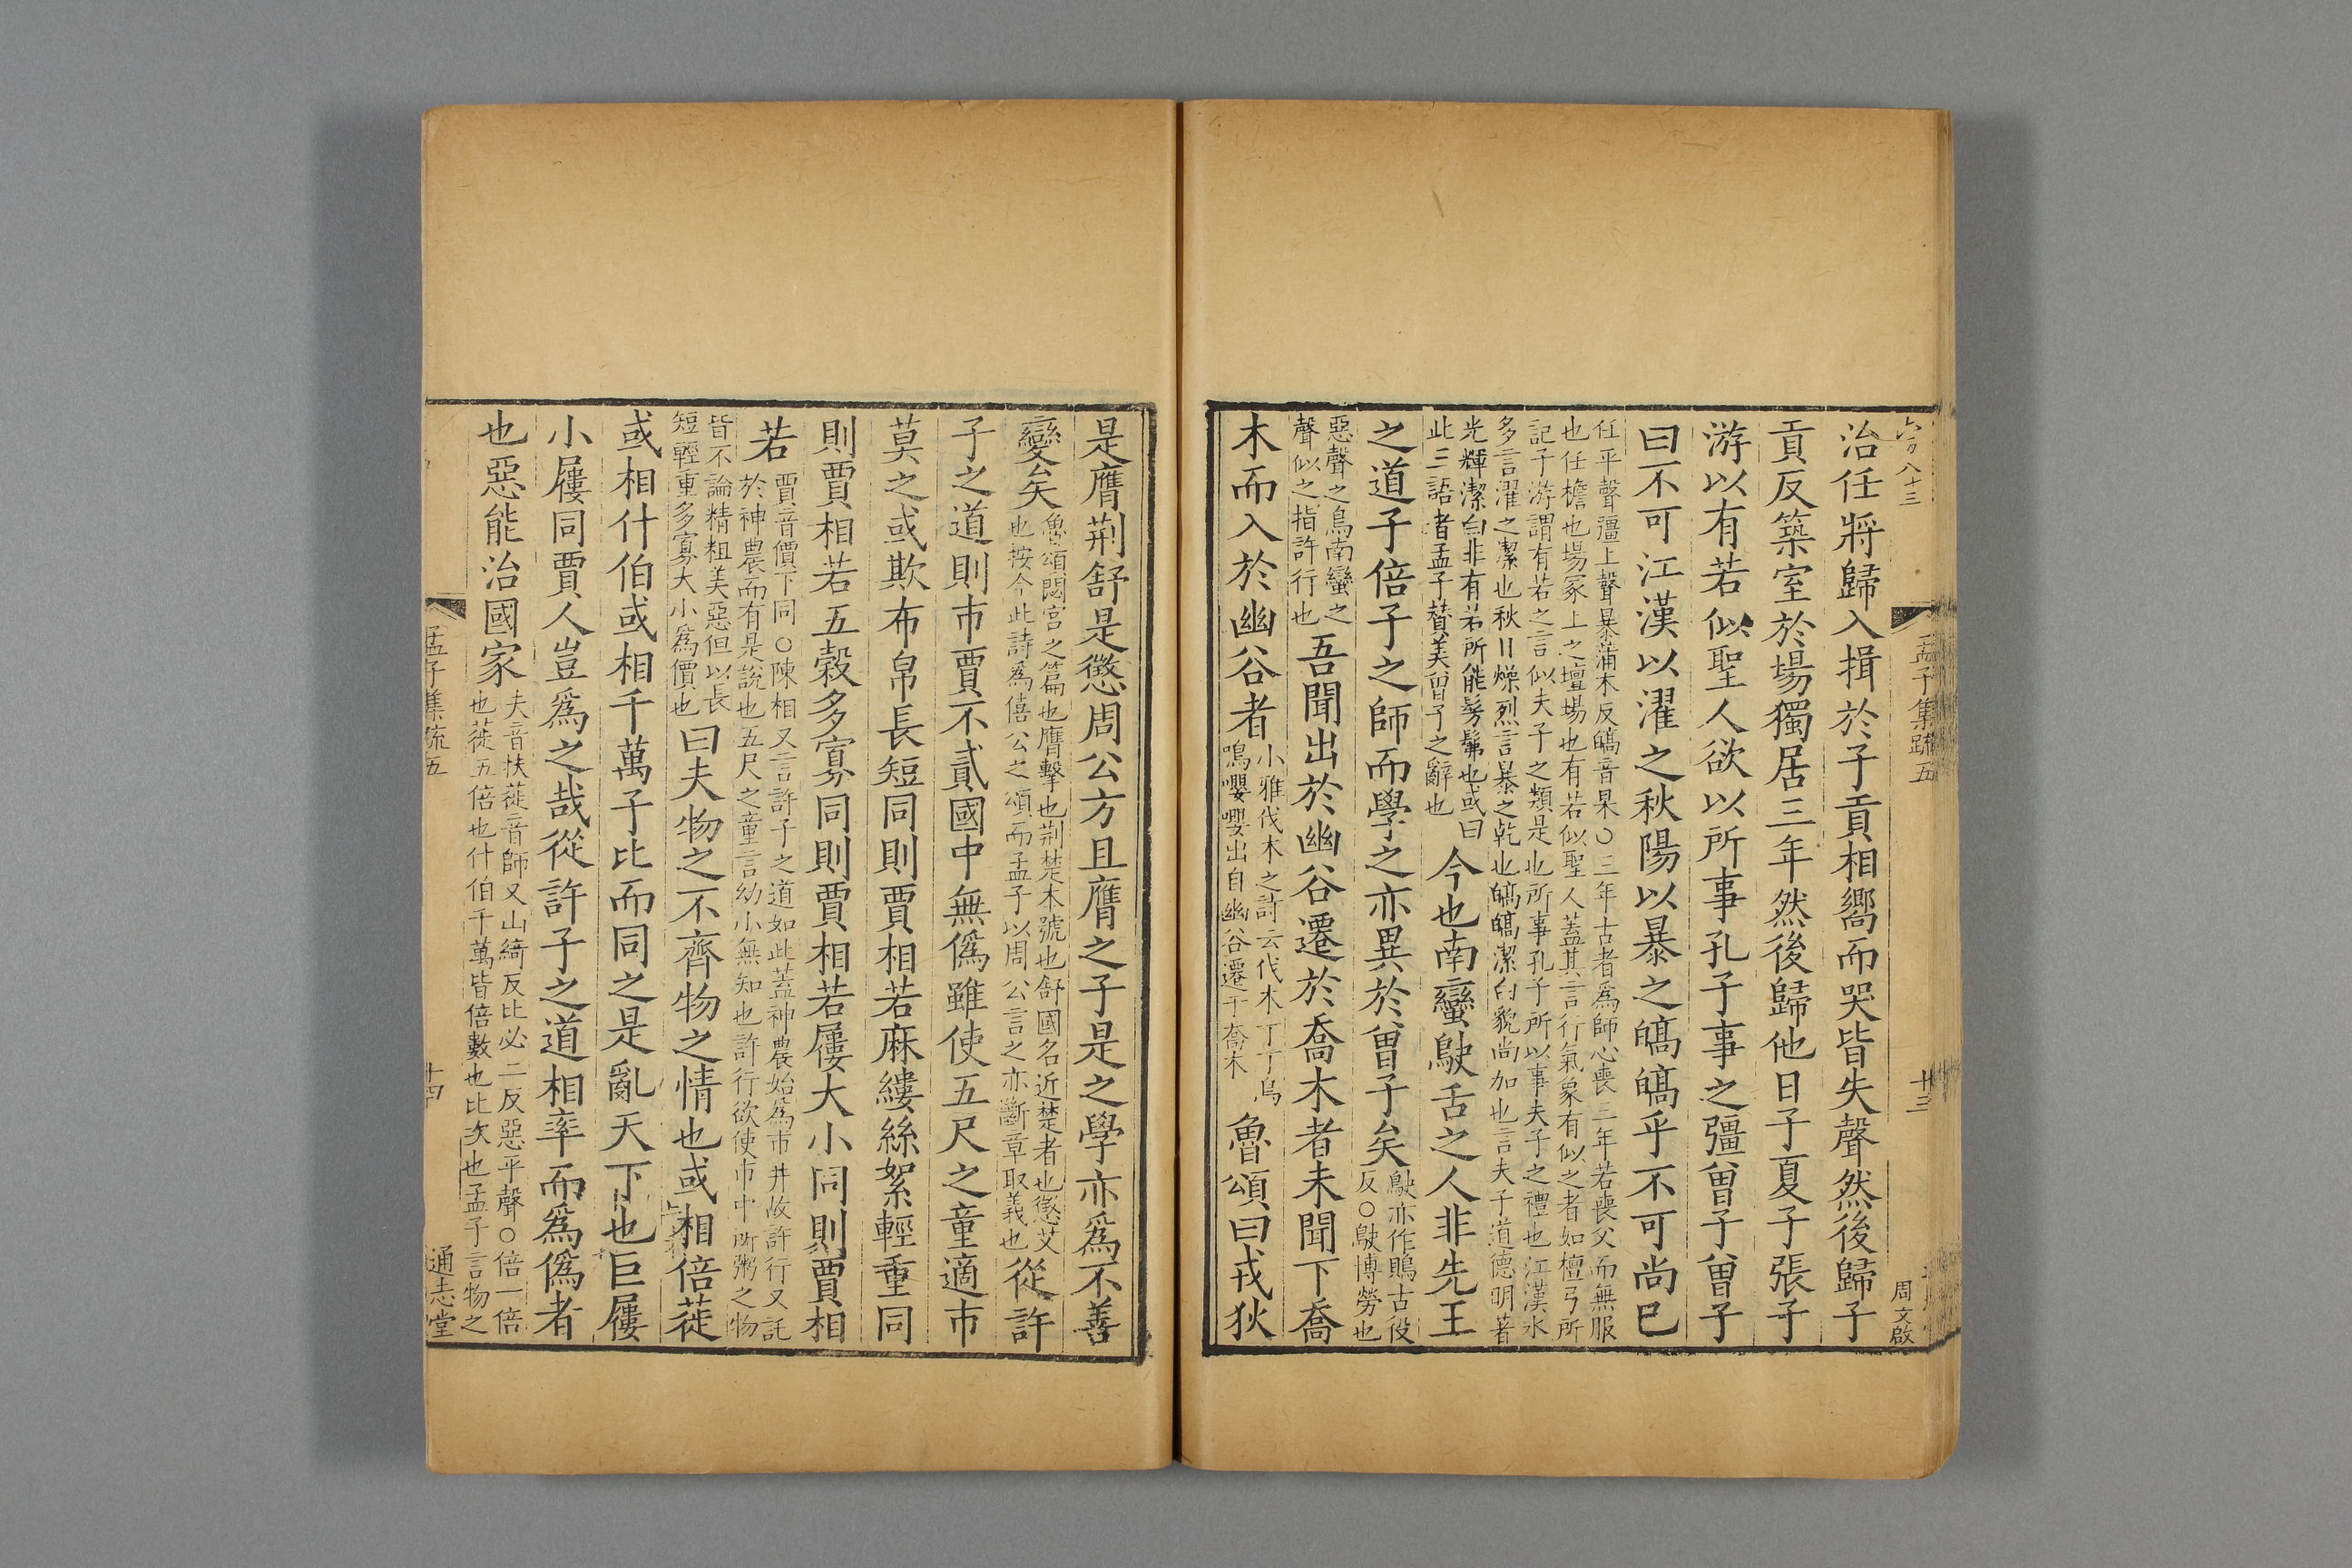 六百八十三
孟子集疏五
廿三
周文啟
治任將歸入揖於子貢相嚮而哭皆失聲然後歸子
貢反築室於場獨居三年然後歸他日子夏子張子
游以有若似聖人欲以所事孔子事之彊曾子曾子
曰不可江漢以濯之秋陽以暴之皜皜乎不可尚已
任平聲彊上聲暴蒲木反皜音杲○三年古者為師心喪三年若喪父而無服
也任檐也場冢上之壇場也有若似聖人蓋其言行氣象有似之者如檀弓所
記子游謂有若之言似夫子之類是也所事孔子所以事夫子之禮也江漢水
多言濯之潔也秋日燥烈言暴之乾也皜皜潔白貌尚加也言夫子道德明著
光輝潔白非有若所能髣髴也或曰
此三語者孟子贊美曾子之辭也
今也南蠻鴃舌之人非先王
之道子倍子之師而學之亦異於曾子矣
鴃亦作鵙古役
反○鴃博勞也
惡聲之鳥南蠻之
聲似之指許行也
吾聞出於幽谷遷於喬木者未聞下喬
木而入於幽谷者
小雅伐木之詩云伐木丁丁鳥
鳴嚶嚶出自幽谷遷于喬木
魯頌曰戎狄
是膺荆舒是懲周公方且膺之子是之學亦為不善
變矣
魯頌閟宫之篇也膺擊也荆楚本號也舒國名近楚者也懲艾
也按今此詩為僖公之頌而孟子以周公言之亦斷章取義也
從許
子之道則市賈不貳國中無偽雖使五尺之童適市
莫之或欺布帛長短同則賈相若麻縷絲絮輕重同
則賈相若五穀多寡同則賈相若屨大小同則賈相
若
賈音價下同○陳相又言許子之道如此蓋神農始為市井故許行又託
於神農而有是說也五尺之童言幼小無知也許行欲使市中所粥之物
皆不論精粗美惡但以長
短輕重多寡大小為價也
曰夫物之不齊物之情也或相倍蓰
或相什伯或相千萬子比而同之是亂天下也巨屨
小屨同賈人豈為之哉從許子之道相率而為偽者
也惡能治國家
夫音扶蓰音師又山綺反比必二反惡平聲○倍一倍
也蓰五倍也什伯千萬皆倍數也比次也孟子言物之
孟子集疏五
十四
通志堂